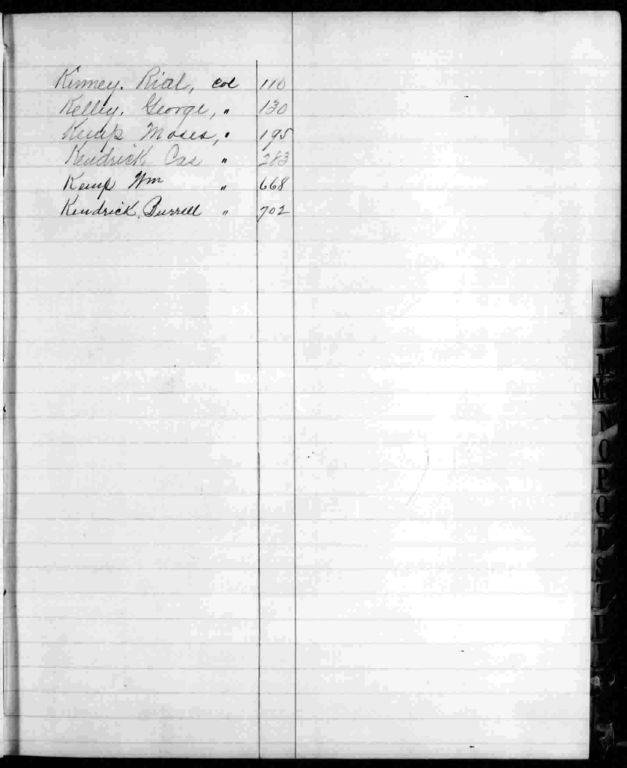 Kinney. Rial, col 110
Kelley. George, " 130
Kemp Moses, " 195
Kendrick Cas " 283
Kemp Wm " 668
Kendrick, Burrell " 702
L
M
N
O
P
Q
R
S
T